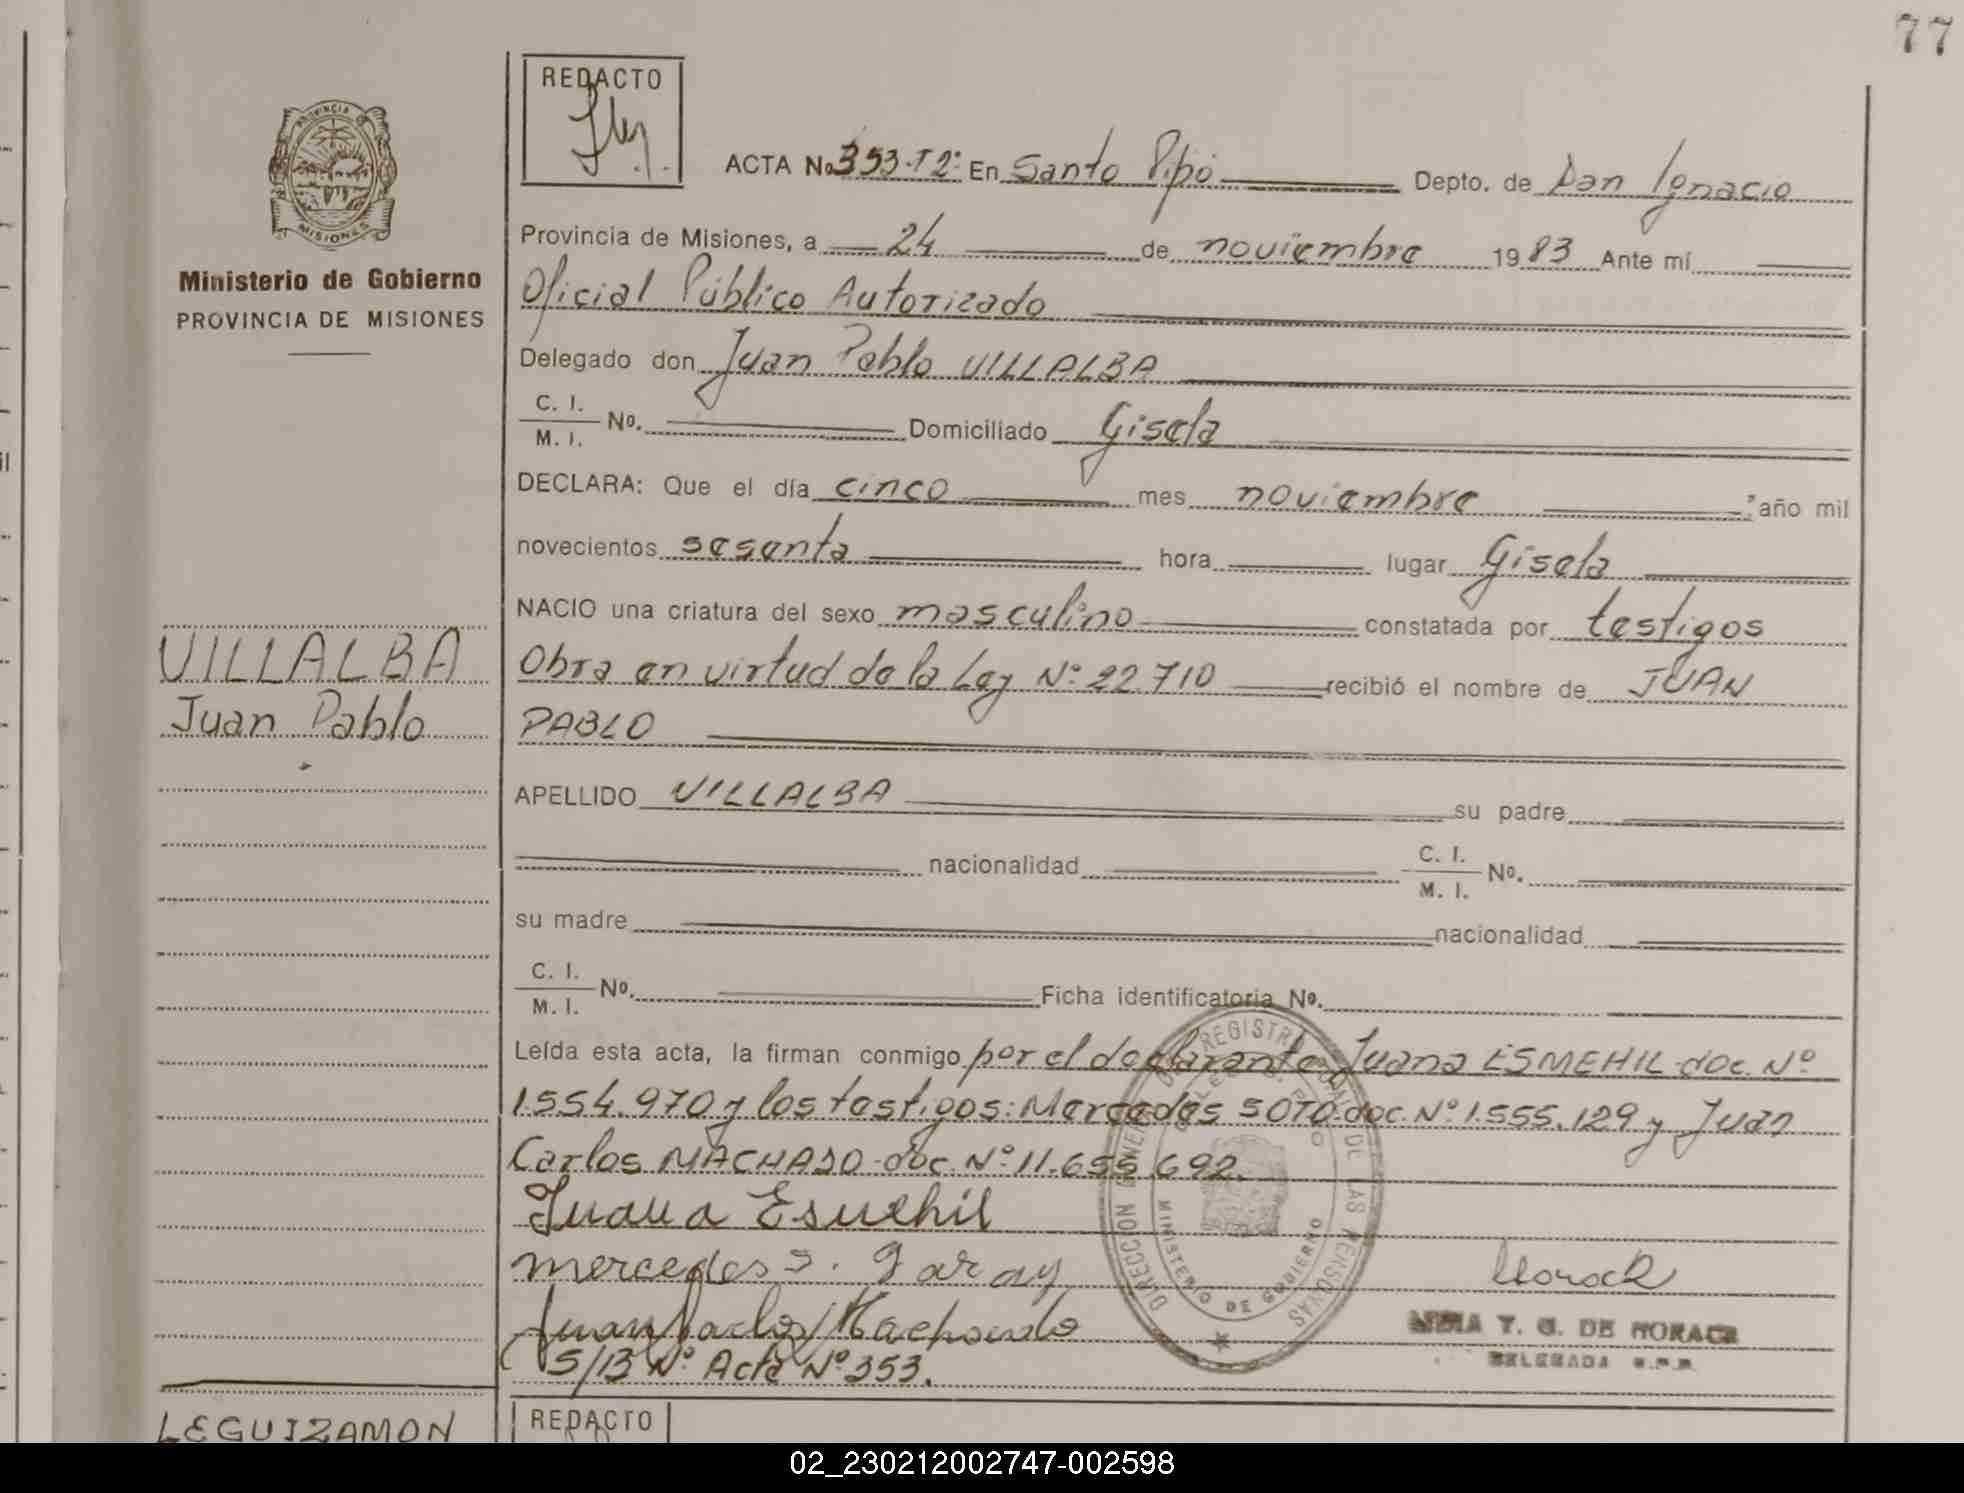 77
REDACTO
PROVINCIA DE
MISIONES
Ministerio de Gobierno
PROVINCIA DE MISIONES
ACTA No 353-T2º En Santo Pipó Depto. de San Ignacio
Provincia de Misiones, a 24 de noviembre 1983 Ante mí
Oficial Público Autorizado
Delegado don Juan Pablo VILLALBA
C. I. / M. I. No. Domiciliado Gisela
DECLARA: Que el día cinco mes noviembre año mil
novecientos sesenta hora lugar Gisela
NACIO una criatura del sexo masculino constatada por testigos
VILLALBA
Juan Pablo
Obra en virtud de la Ley Nº 22.710 recibió el nombre de JUAN
PABLO
APELLIDO VILLALBA su padre
nacionalidad C. I. / M. I. No.
su madre nacionalidad
C. I. / M. I. No. Ficha identificatoria No.
Leída esta acta, la firman conmigo por el declarante Juana ESMEHIL doc. Nº
1.554.970 y los testigos: Mercedes SOTO doc. Nº 1.555.129 y Juan
Carlos MACHADO doc. Nº 11.655.692.
Juana Esmehil
mercedes S. Garay
Juan Carlos Machado
S/B Nº Acta Nº 353.
DIRECCION GENERAL DEL REGISTRO PROVINCIAL DE LAS PERSONAS
MINISTERIO DE GOBIERNO
T. G. DE HORACK
DELEGADA R.P.P.
LEGUIZAMON
REDACTO
02_230212002747-002598